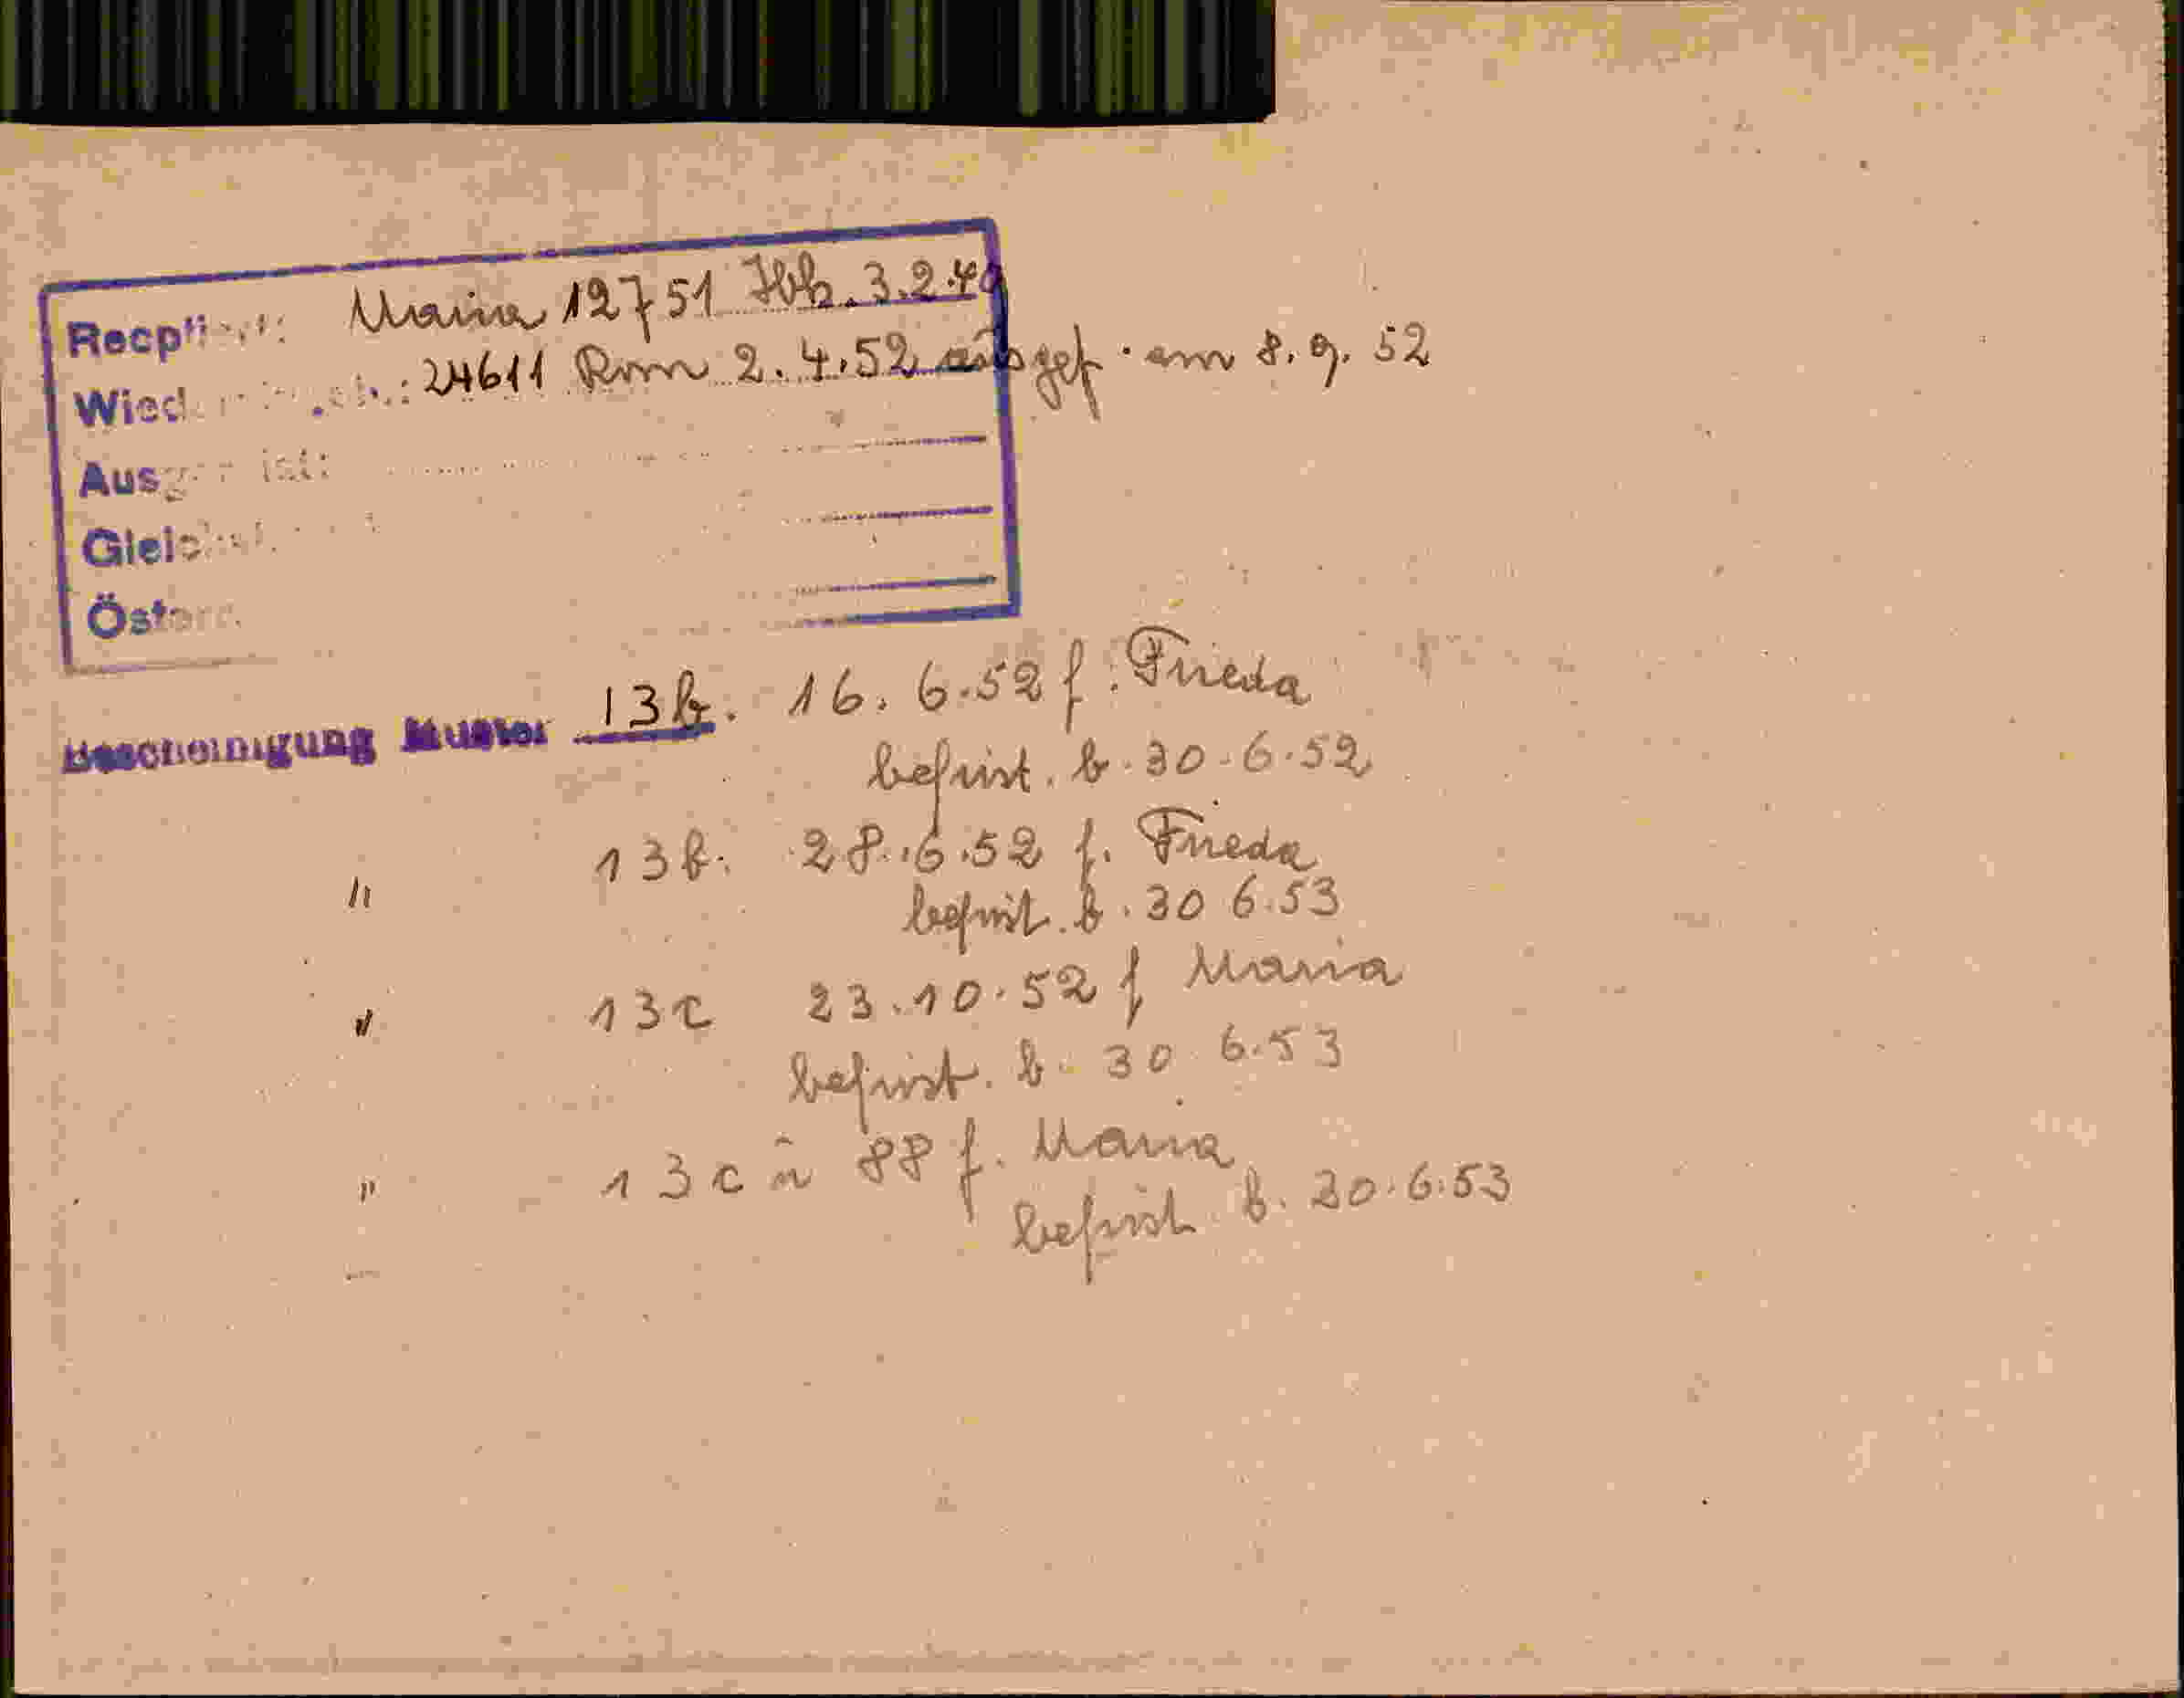 Maria 12751 Ibk. 3.2.40
24611 Rom 2.4.52 ausgef. am 8.9.52
Bescheinigung Muster 13b. 16.6.52 f. Frieda
befrist. b. 30.6.52
" 13b. 28.6.52 f. Frieda
befrist. b. 30 6.53
" 13c 23.10.52 f Maria
befrist. b. 30 6.53
" 13c u 88 f. Maria
befrist. b. 30.6.53